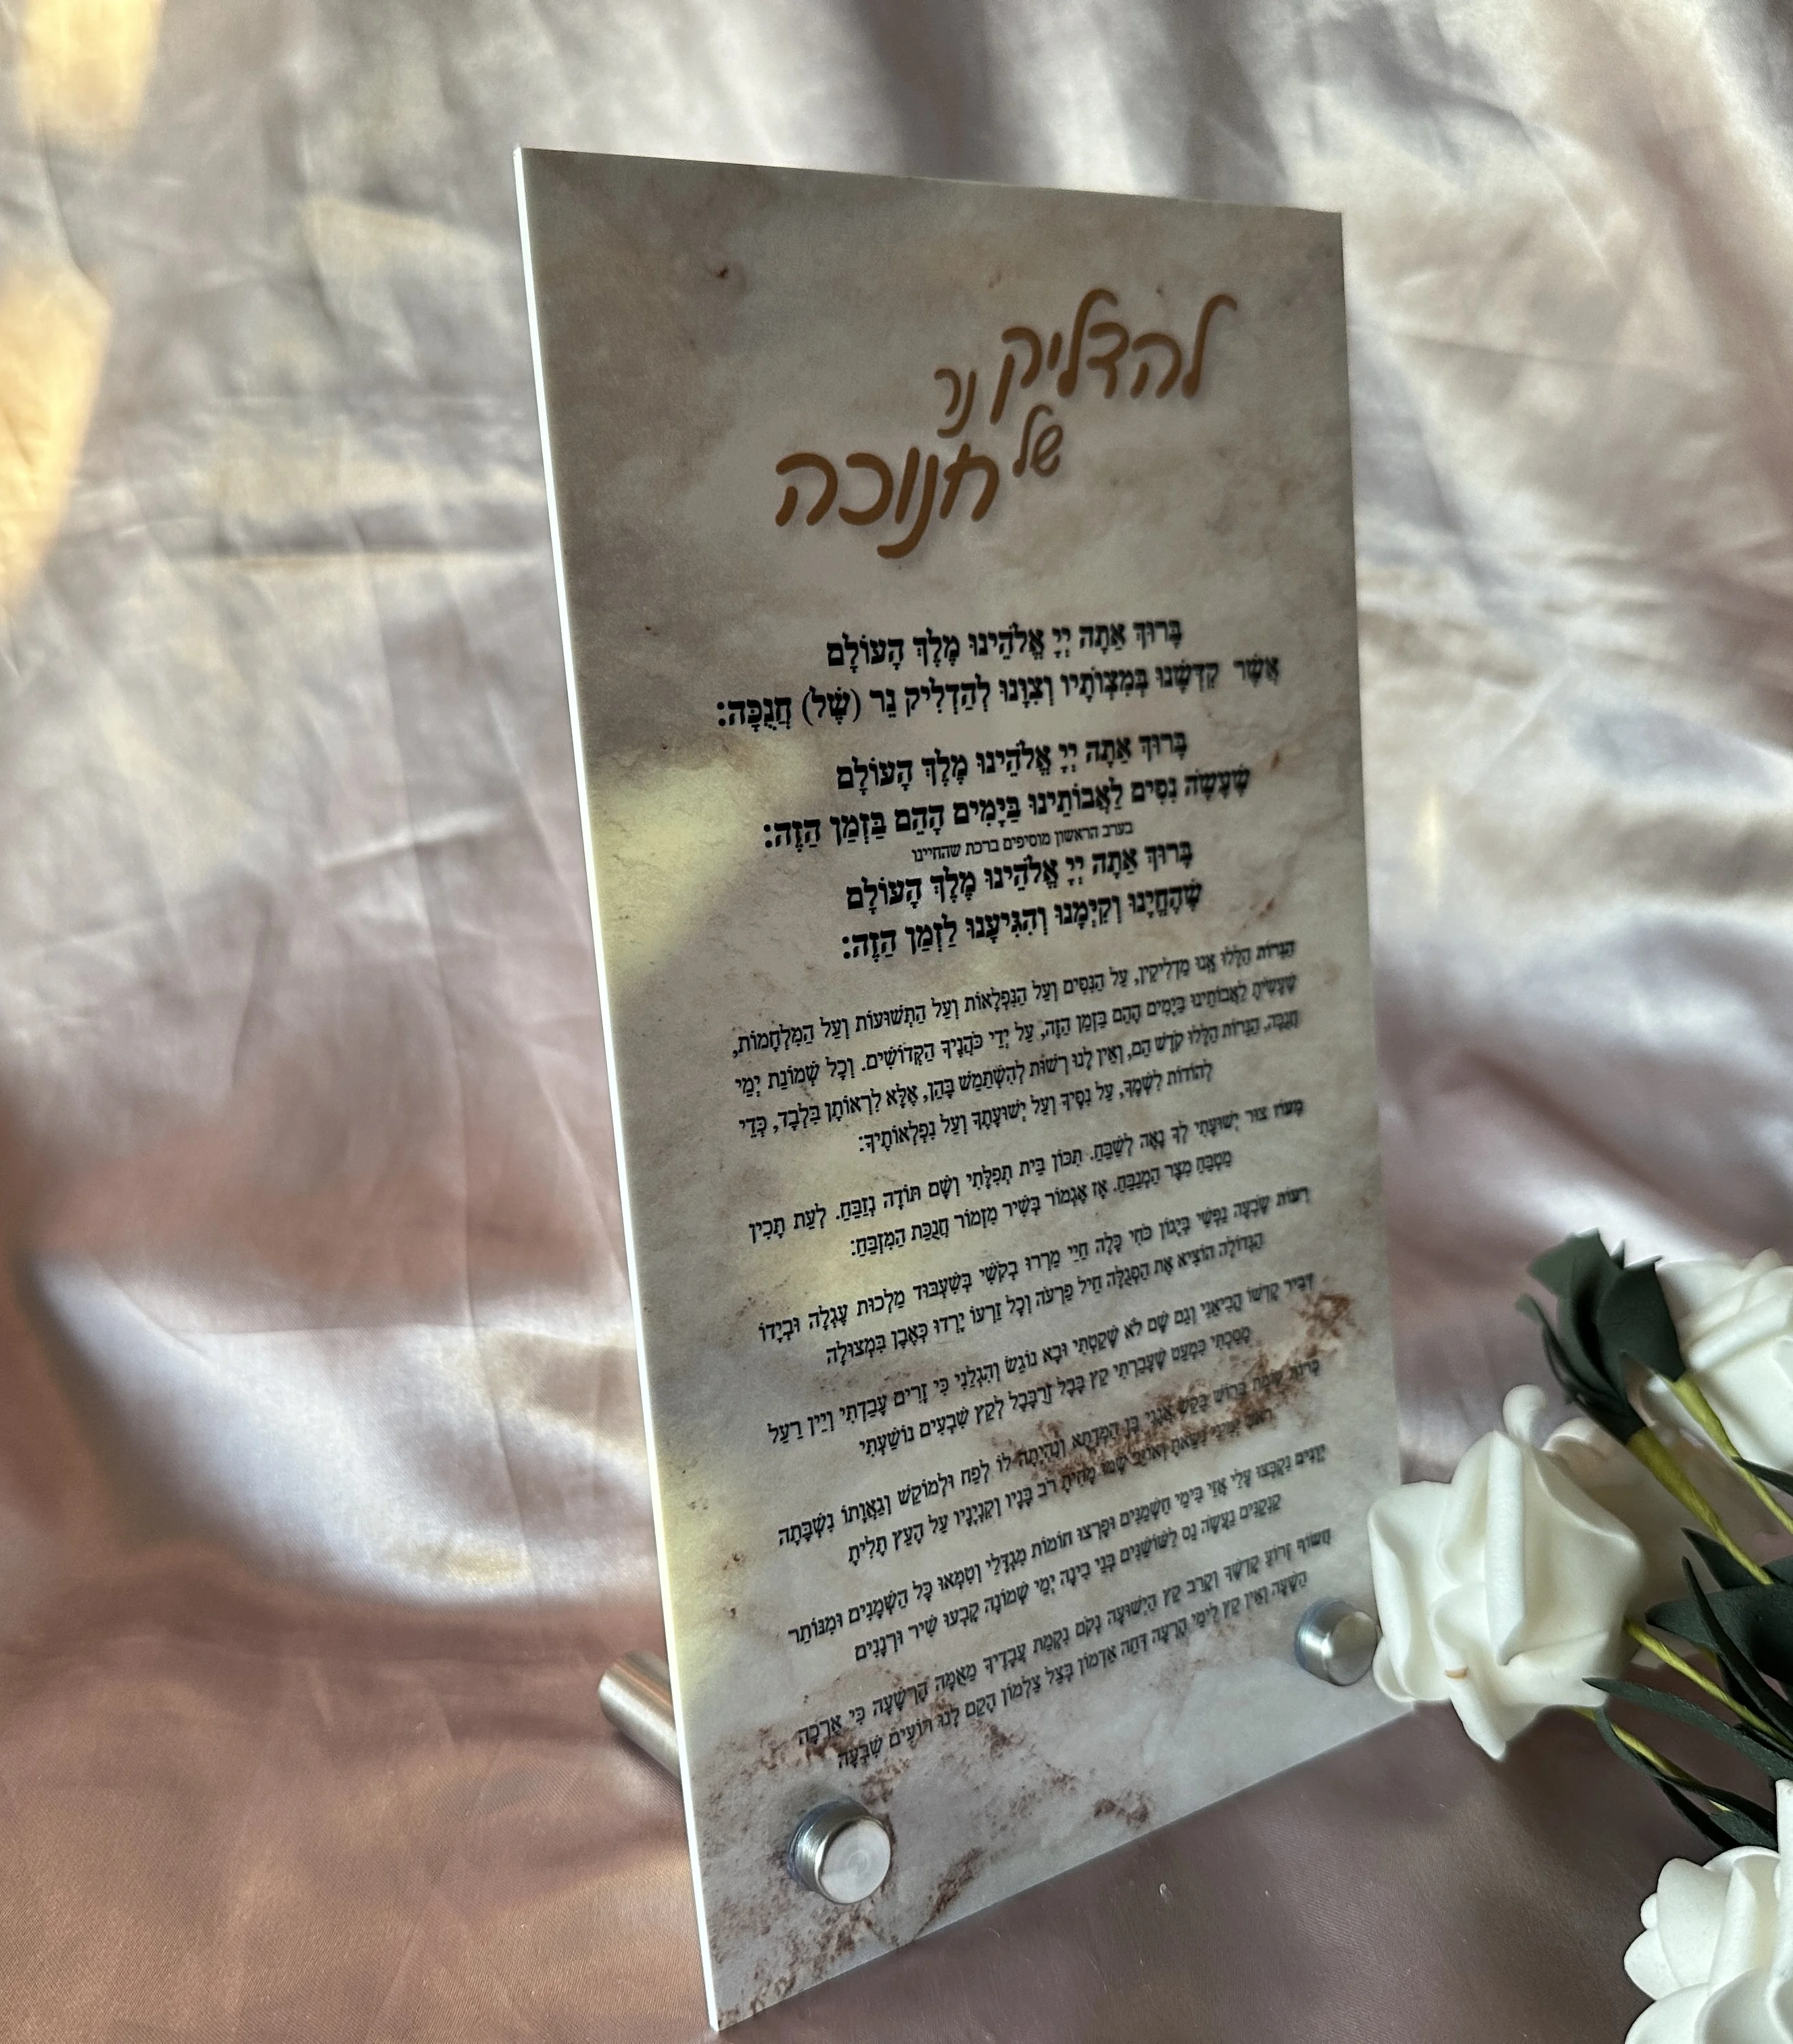 להדליק נר
של חנוכה
בָּרוּךְ אַתָּה יְיָ אֱלֹהֵינוּ מֶלֶךְ הָעוֹלָם
אֲשֶׁר קִדְּשָׁנוּ בְּמִצְוֹתָיו וְצִוָּנוּ לְהַדְלִיק נֵר (שֶׁל) חֲנֻכָּה:
בָּרוּךְ אַתָּה יְיָ אֱלֹהֵינוּ מֶלֶךְ הָעוֹלָם
שֶׁעָשָׂה נִסִּים לַאֲבוֹתֵינוּ בַּיָּמִים הָהֵם בַּזְּמַן הַזֶּה:
בערב הראשון מוסיפים ברכת שהחיינו
בָּרוּךְ אַתָּה יְיָ אֱלֹהֵינוּ מֶלֶךְ הָעוֹלָם
שֶׁהֶחֱיָנוּ וְקִיְּמָנוּ וְהִגִּיעָנוּ לַזְּמַן הַזֶּה:
הַנֵּרוֹת הַלָּלוּ אָנוּ מַדְלִיקִין, עַל הַנִּסִּים וְעַל הַנִּפְלָאוֹת וְעַל הַתְּשׁוּעוֹת וְעַל הַמִּלְחָמוֹת,
שֶׁעָשִׂיתָ לַאֲבוֹתֵינוּ בַּיָּמִים הָהֵם בַּזְּמַן הַזֶּה, עַל יְדֵי כֹּהֲנֶיךָ הַקְּדוֹשִׁים. וְכָל שְׁמוֹנַת יְמֵי
חֲנֻכָּה, הַנֵּרוֹת הַלָּלוּ קֹדֶשׁ הֵם, וְאֵין לָנוּ רְשׁוּת לְהִשְׁתַּמֵּשׁ בָּהֵן, אֶלָּא לִרְאוֹתָן בִּלְבָד, כְּדֵי
לְהוֹדוֹת לְשִׁמְךָ, עַל נִסֶּיךָ וְעַל יְשׁוּעָתֶךָ וְעַל נִפְלְאוֹתֶיךָ:
מָעוֹז צוּר יְשׁוּעָתִי לְךָ נָאֶה לְשַׁבֵּחַ. תִּכּוֹן בֵּית תְּפִלָּתִי וְשָׁם תּוֹדָה נְזַבֵּחַ. לְעֵת תָּכִין
מַטְבֵּחַ מִצָּר הַמְנַבֵּחַ. אָז אֶגְמוֹר בְּשִׁיר מִזְמוֹר חֲנֻכַּת הַמִּזְבֵּחַ:
רָעוֹת שָׂבְעָה נַפְשִׁי בְּיָגוֹן כֹּחִי כָּלָה חַיַּי מֵרְרוּ בְקֹשִׁי בְּשִׁעְבּוּד מַלְכוּת עֶגְלָה וּבְיָדוֹ
הַגְּדוֹלָה הוֹצִיא אֶת הַסְּגֻלָּה חֵיל פַּרְעֹה וְכָל זַרְעוֹ יָרְדוּ כְּאֶבֶן בִּמְצוּלָה
דְּבִיר קָדְשׁוֹ הֱבִיאַנִי וְגַם שָׁם לֹא שָׁקַטְתִּי וּבָא נוֹגֵשׂ וְהִגְלַנִי כִּי זָרִים עָבַדְתִּי וְיֵין רַעַל
מָסַכְתִּי כִּמְעַט שֶׁעָבַרְתִּי קֵץ בָּבֶל זְרֻבָּבֶל לְקֵץ שִׁבְעִים נוֹשַׁעְתִּי
כְּרוֹת קוֹמַת בְּרוֹשׁ בִּקֵּשׁ אֲגָגִי בֶּן הַמְּדָתָא וְנִהְיָתָה לוֹ לְפַח וּלְמוֹקֵשׁ וְגַאֲוָתוֹ נִשְׁבָּתָה
רֹאשׁ יְמִינִי נִשֵּׂאתָ וְאוֹיֵב שְׁמוֹ מָחִיתָ רֹב בָּנָיו וְקִנְיָנָיו עַל הָעֵץ תָּלִיתָ
יְוָנִים נִקְבְּצוּ עָלַי אֲזַי בִּימֵי חַשְׁמַנִּים וּפָרְצוּ חוֹמוֹת מִגְדָּלַי וְטִמְּאוּ כָּל הַשְּׁמָנִים וּמִנּוֹתַר
קַנְקַנִּים נַעֲשָׂה נֵס לַשּׁוֹשַׁנִּים בְּנֵי בִינָה יְמֵי שְׁמוֹנָה קָבְעוּ שִׁיר וּרְנָנִים
חֲשׂוֹף זְרוֹעַ קָדְשֶׁךָ וְקָרֵב קֵץ הַיְשׁוּעָה נְקֹם נִקְמַת עֲבָדֶיךָ מֵאֻמָּה הָרְשָׁעָה כִּי אָרְכָה
הַשָּׁעָה וְאֵין קֵץ לִימֵי הָרָעָה דְּחֵה אַדְמוֹן בְּצֵל צַלְמוֹן הָקֵם לָנוּ רוֹעִים שִׁבְעָה